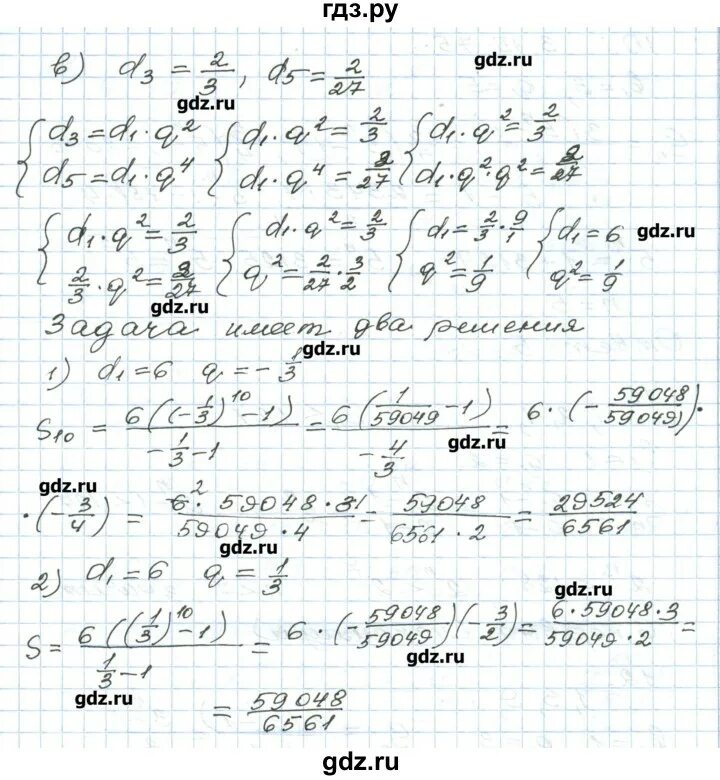 гдз.ру
в) d₃ = 2/3, d₅ = 2/27
gdz.ru
gdz.ru
{ d₃ = d₁ · q² { d₁ · q² = 2/3 { d₁ · q² = 2/3
{ d₅ = d₁ · q⁴ { d₁ · q⁴ = 2/27 { d₁ · q² · q² = 2/27
{ d₁ · q² = 2/3 { d₁ · q² = 2/3 { d₁ = 2/3 · 9/1 { d₁ = 6 gdz.ru
{ 2/3 · q² = 2/27 { q² = 2/27 · 3/2 { q² = 1/9 { q² = 1/9
gdz.ru
Задача имеет два решения
gdz.ru
1) d₁ = 6 q = -1/3
S₁₀ = 6((-1/3)¹⁰ - 1) / (-1/3 - 1) = 6(1/59049 - 1) / (-4/3) = 6 · (-59048/59049) ·
gdz.ru
gdz.ru
· (-3/4) = 6² · 59048 · 3¹ / 59049 · 4 = 59048 / 6561 · 2 = 29524/6561
gdz.ru
2) d₁ = 6 q = 1/3
gdz.ru
S = 6((1/3)¹⁰ - 1) / (1/3 - 1) = 6 · (-59048/59049)(-3/2) = 6 · 59048 · 3 / 59049 · 2 =
gdz.ru
gdz.ru
= 59048/6561
gdz.ru